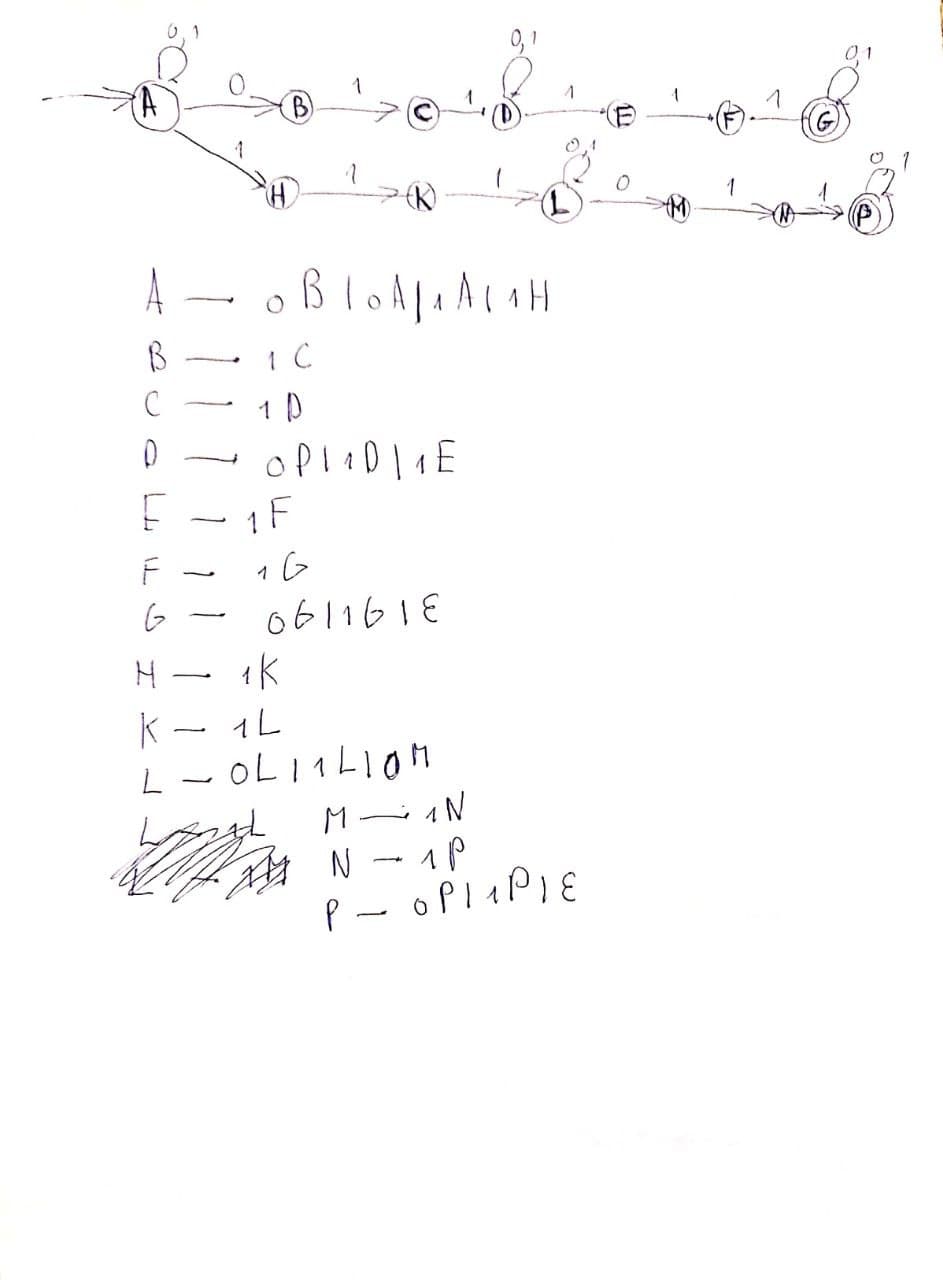 0,1 0,1 0,1
A 0 B 1 C 1 D 1 E 1 F 1 G
1 H 1 K 1 L 0 M 1 N 1 P
0,1 0 1
A — 0B|0A|1A|1H
B — 1C
C — 1D
D — 0P|1D|1E
E — 1F
F — 1G
G — 0G|1G|ε
H — 1K
K — 1L
L — 0L|1L|0M
M — 1N
N — 1P
P — 0P|1P|ε